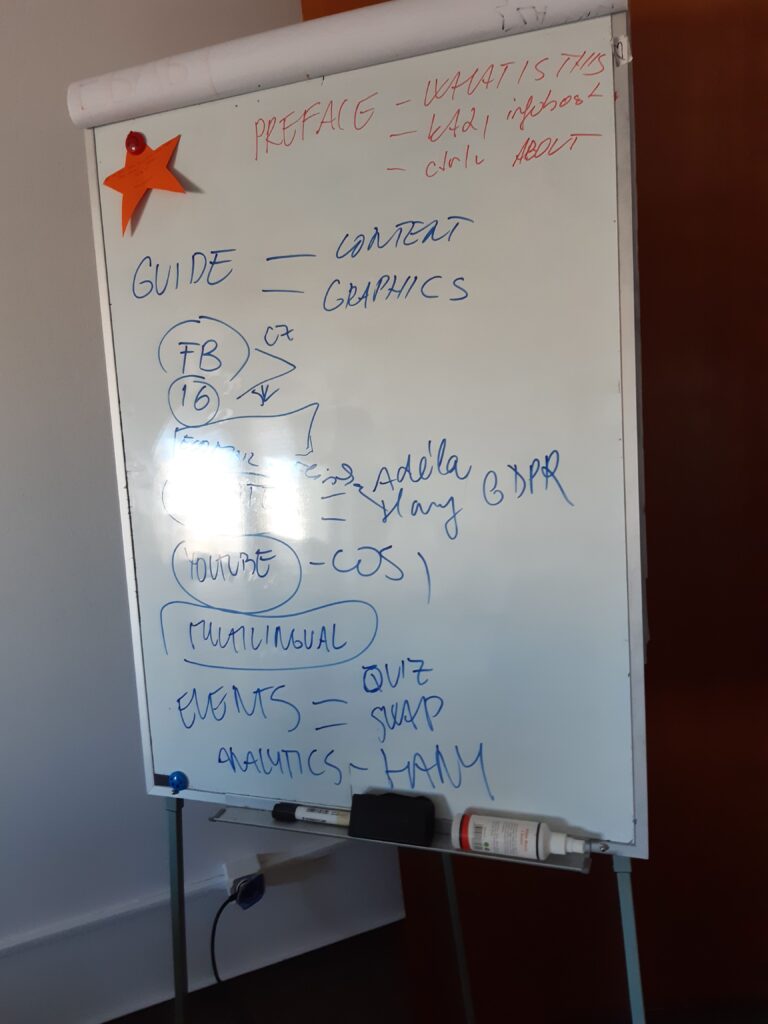 PREFACE - WHAT IS THIS
- KA2,
- ABOUT
GUIDE - CONTENT
- GRAPHICS
FB CZ
16
Adéla
Hany GDPR
YOUTUBE - COS
MULTILINGUAL
EVENTS = QUIZ
SWAP
ANALYTICS - HANY